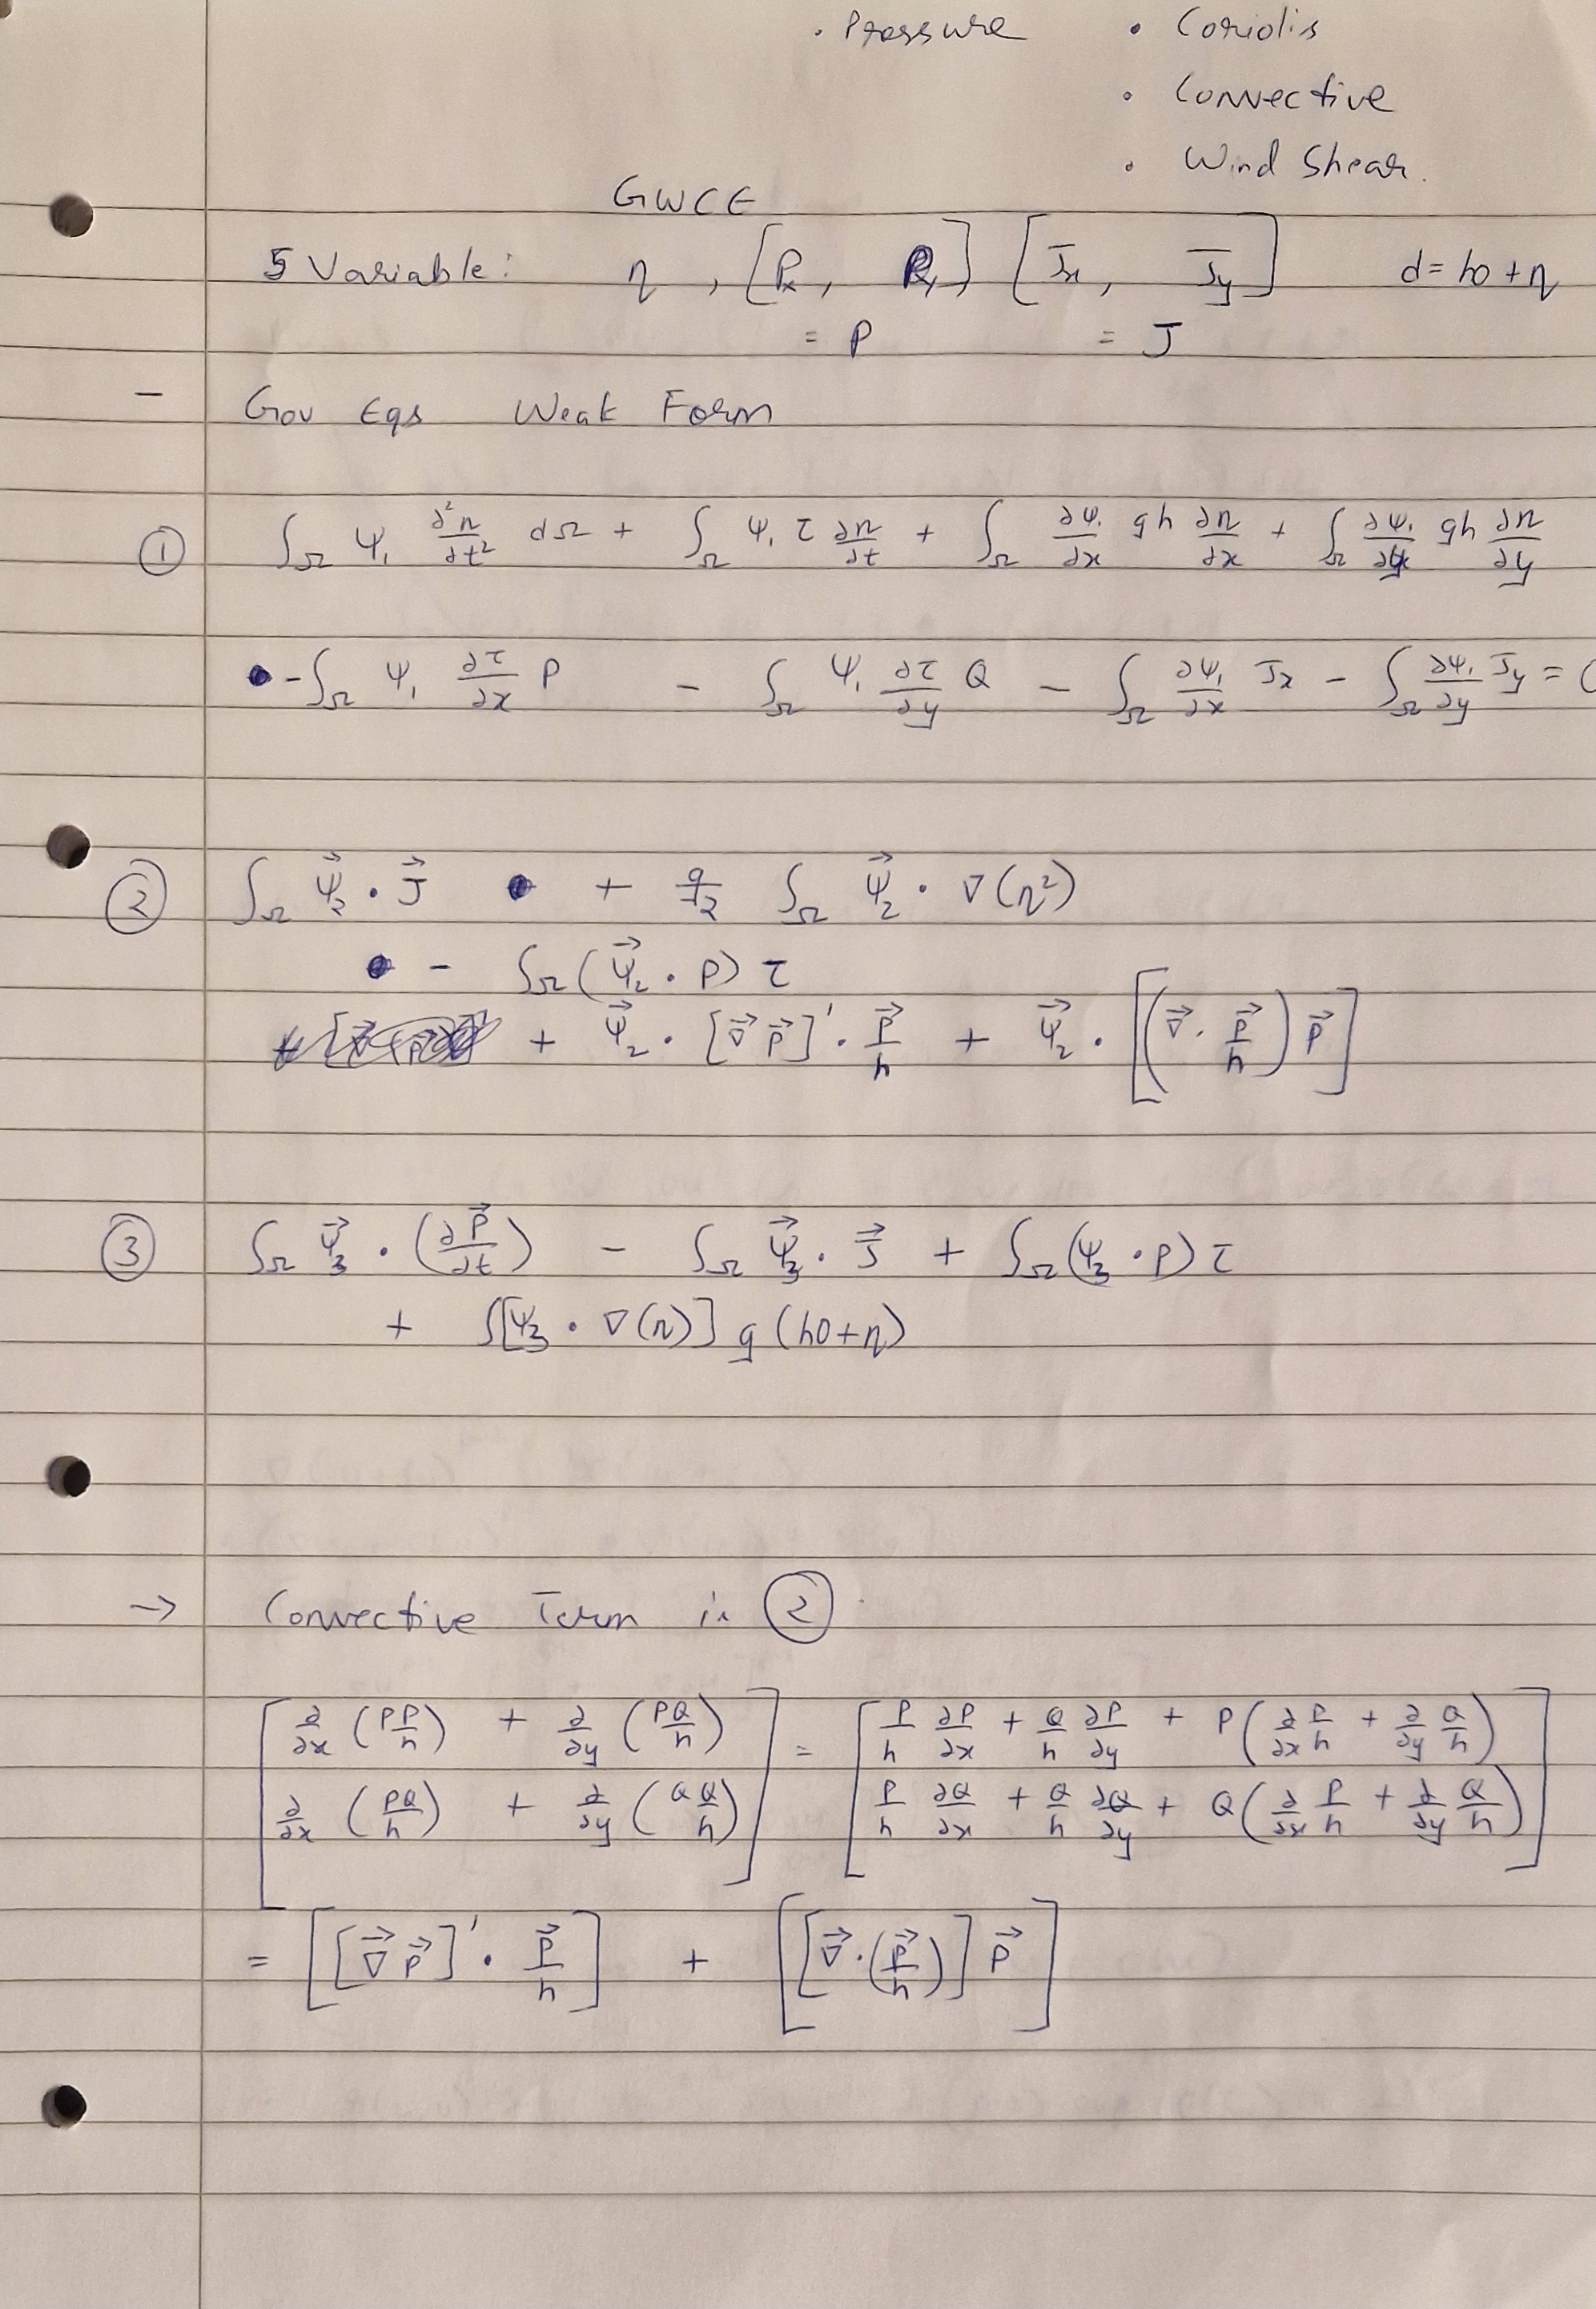 · Pressure • Coriolis
• Convective
• Wind Shear.
GWCE
5 Variable: η , [Pₓ, P_y] [Jx, Jy] d = h0 + η
= P = J
– Gov Eqs Weak Form
① ∫_Ω ψ₁ ∂²η/∂t² dΩ + ∫_Ω ψ₁ τ ∂η/∂t + ∫_Ω ∂ψ₁/∂x gh ∂η/∂x + ∫_Ω ∂ψ₁/∂y gh ∂η/∂y
-∫_Ω ψ₁ ∂τ/∂x P - ∫_Ω ψ₁ ∂τ/∂y Q - ∫_Ω ∂ψ₁/∂x Jx - ∫_Ω ∂ψ₁/∂y Jy = 0
② ∫_Ω ψ⃗₂ · J⃗ + g/2 ∫_Ω ψ⃗₂ · ∇(η²)
- ∫_Ω (ψ⃗₂ · P) τ
+ ψ⃗₂ · [∇⃗ P⃗]' · P⃗/h + ψ⃗₂ · [(∇⃗ · P⃗/h) P⃗]
③ ∫_Ω ψ⃗₃ · (∂P⃗/∂t) - ∫_Ω ψ⃗₃ · J⃗ + ∫_Ω (ψ₃ · P) τ
+ ∫[ψ₃ · ∇(η)] g (h0+η)
→ Convective Term in ②
[∂/∂x (PP/h) + ∂/∂y (PQ/h)] = [P/h ∂P/∂x + Q/h ∂P/∂y + P(∂/∂x P/h + ∂/∂y Q/h)]
[∂/∂x (PQ/h) + ∂/∂y (QQ/h)] [P/h ∂Q/∂x + Q/h ∂Q/∂y + Q(∂/∂x P/h + ∂/∂y Q/h)]
= [[∇⃗ P⃗]' · P⃗/h] + [[∇⃗ · (P⃗/h)] P⃗]